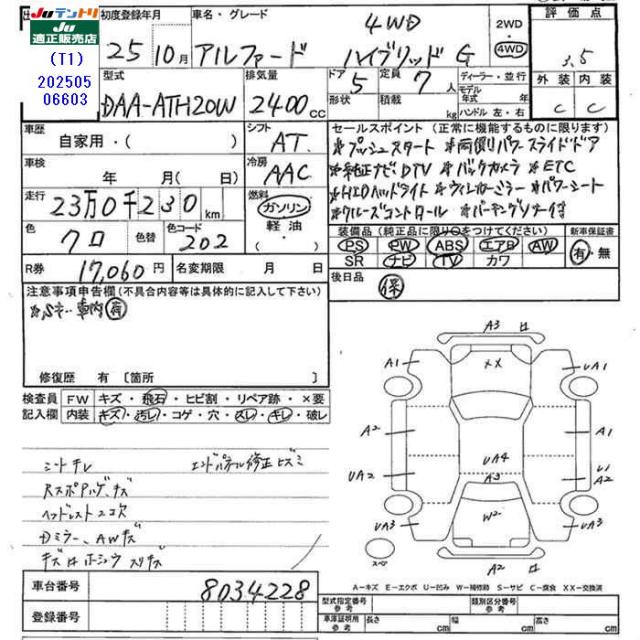 JUテントリ
JU
適正販売店
(T1)
202505
06603
初度登録年月
25年10月
車名・グレード
4WD
アルファード ハイブリッド G
2WD
・
4WD
評価点
3.5
外装 内装
C C
型式
DAA-ATH20W
排気量
2400cc
ドア 5
形状
定員 7人
積載 kg
ディーラー・並行
モデル年式 年
ハンドル 左・右
車歴
自家用・( )
シフト
AT
セールスポイント (正常に機能するものに限ります)
*プッシュスタート *両側パワースライドドア
*純正ナビDTV *バックカメラ *ETC
*HIDヘッドライト *ウィンカーミラー *パワーシート
*クルーズコントロール *パーキングソナー付
車検
年 月(日)
冷房
AAC
走行
23万0千230km
燃料
ガソリン
軽油
・
色
クロ
色替
色コード
202
装備品 (純正品に限り○をつけてください)
PS PW ABS エアB AW
SR ナビ TV カワ
新車保証書
有・無
R券
17,060円
名変期限 月 日
後日品
保
注意事項申告欄(不具合内容等は具体的に記入して下さい)
*Sキー車内有
修復歴 有 〔箇所 〕
検査員記入欄
FW キズ・飛石・ヒビ割・リペア跡・×要
内装 キズ・汚レ・コゲ・穴・スレ・キレ・破レ
シートチレ エンドパネル修正ヒズミ
Rスポアルゲ、キズ
ヘッドレストスコス
Dミラー、AWキズ
A3
A1
XX
UA1
A2
A1
UA2
UA4
U1
A2
A3
UA3
W2
UA3
スペア
A2
A=キズ E=エクボ U=凹み W=補修跡 S=サビ C=腐食 XX=交換済
車台番号
8034228
登録番号
型式指定番号
参考
類別区分番号
参考
車庫証明用
参考
長さ cm
幅 cm
高さ cm